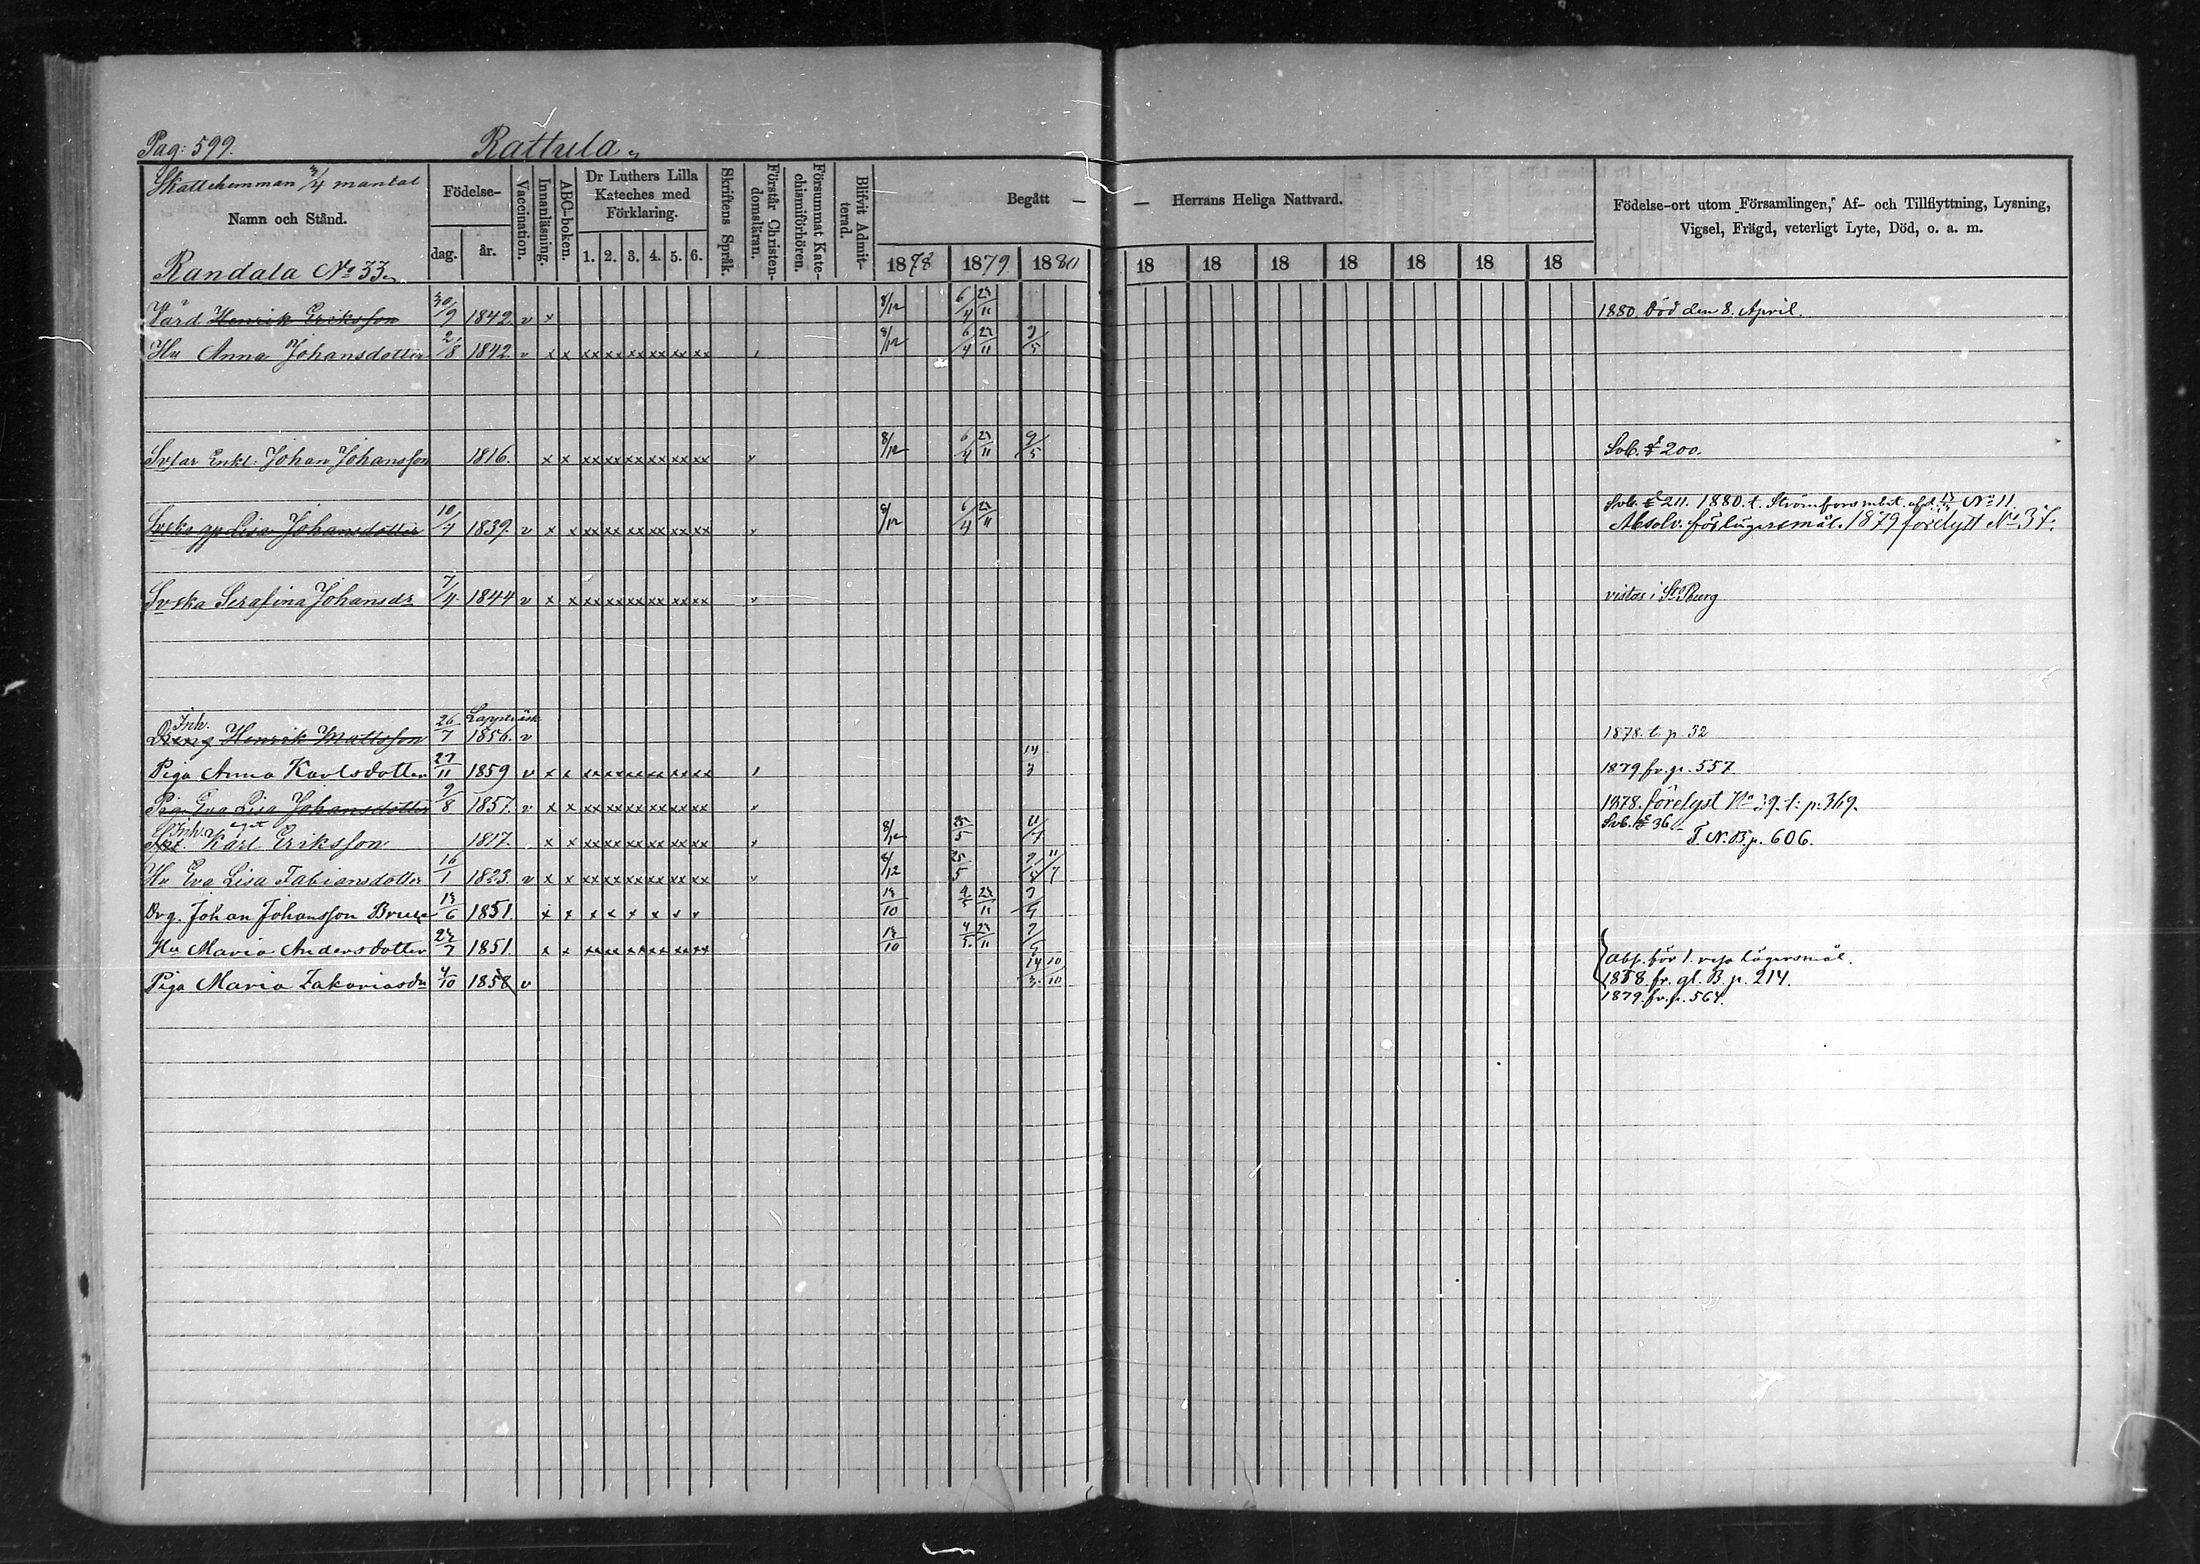 Pag: 599. Rattula
Skattehemman 3/4 mantal
Namn och Stånd.
Randala No 33
Födelse-
dag. år.
Vaccination.
Innanläsning.
ABC-boken.
Dr Luthers Lilla
Kateches med
Förklaring.
1. 2. 3. 4. 5. 6.
Skriftens Språk.
Förstår Christen-
domsläran.
Försummat Kate-
chismiförhören.
Blifvit Admit-
terad.
Begått — — Herrans Heliga Nattvard.
1878 1879 1880 18 18 18 18 18 18 18
Födelse-ort utom Församlingen, Af- och Tillflyttning, Lysning,
Vigsel, Frägd, veterligt Lyte, Död, o. a. m.
Värd Henrik Eriksson 30/9 1842. v x 8/12 6/4 23/11 1880. Död den 8. April.
Hu Anna Johansdotter 2/8 1842. v x x xx xx xx xx xx xx 8/12 6/4 23/11 9/5
Svfar Enkl. Johan Johansson 1816. x x xx xx xx xx xx xx v 8/12 6/4 23/11 9/5 Svb. £ 200.
Svska gp Lisa Johansdotter 10/4 1839. v x x xx xx xx xx xx xx v 8/12 6/4 23/11 Svb. £ 211. 1880. t. No 11.
Absolv. för lägersmål. 1879 förelyst No 37.
Svska Serafina Johansdr 7/4 1844 v x x xx xx xx xx xx xx v vistas i St Pburg
Inh. Lappträsk
Dreng Henrik Mattsson 26/7 1856. v 1878. t. p 52
Piga Anna Karlsdotter 27/11 1859 v x x xx xx xx xx xx xx 14/3 1879 fr. p. 557.
Piga Eva Lisa Johansdotter 9/8 1857. v x x xx xx xx xx xx xx v 1878. förelyst No 39. t: p. 369.
Svb. £ 36
Inh. Karl Eriksson 1817. x x xx xx xx xx xx xx 8/12 25/5 11/7 T. N. B. p. 606.
Hu Eva Lisa Fabiansdotter 16/1 1823. v x x xx xx xx xx xx xx v 8/12 25/5 11/7
Drg. Johan Johansson 13/6 1851. x x x x x x v v 13/10 4/5 23/11
Hu Maria Andersdotter 23/7 1851. x x xx xx xx xx xx xx 13/10 4/5 23/11 abs. för 1. resa lägersmål.
Piga Maria Zakariasdr 4/10 1858 v 14/3 10/10 1878. fr. gl. B. p. 214.
1879. fr. p. 564.